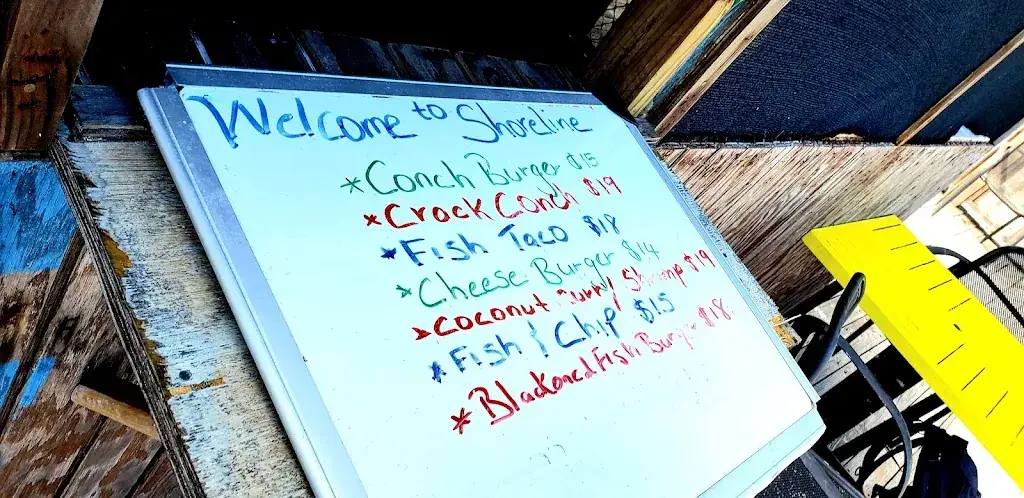 Welcome to Shoreline
*Conch Burger $15
*Crack Conch $19
*Fish Taco $18
*Cheese Burger $14
*Coconut Curry Shrimp $19
*Fish & Chip $15
*Blackened Fish Burger $18